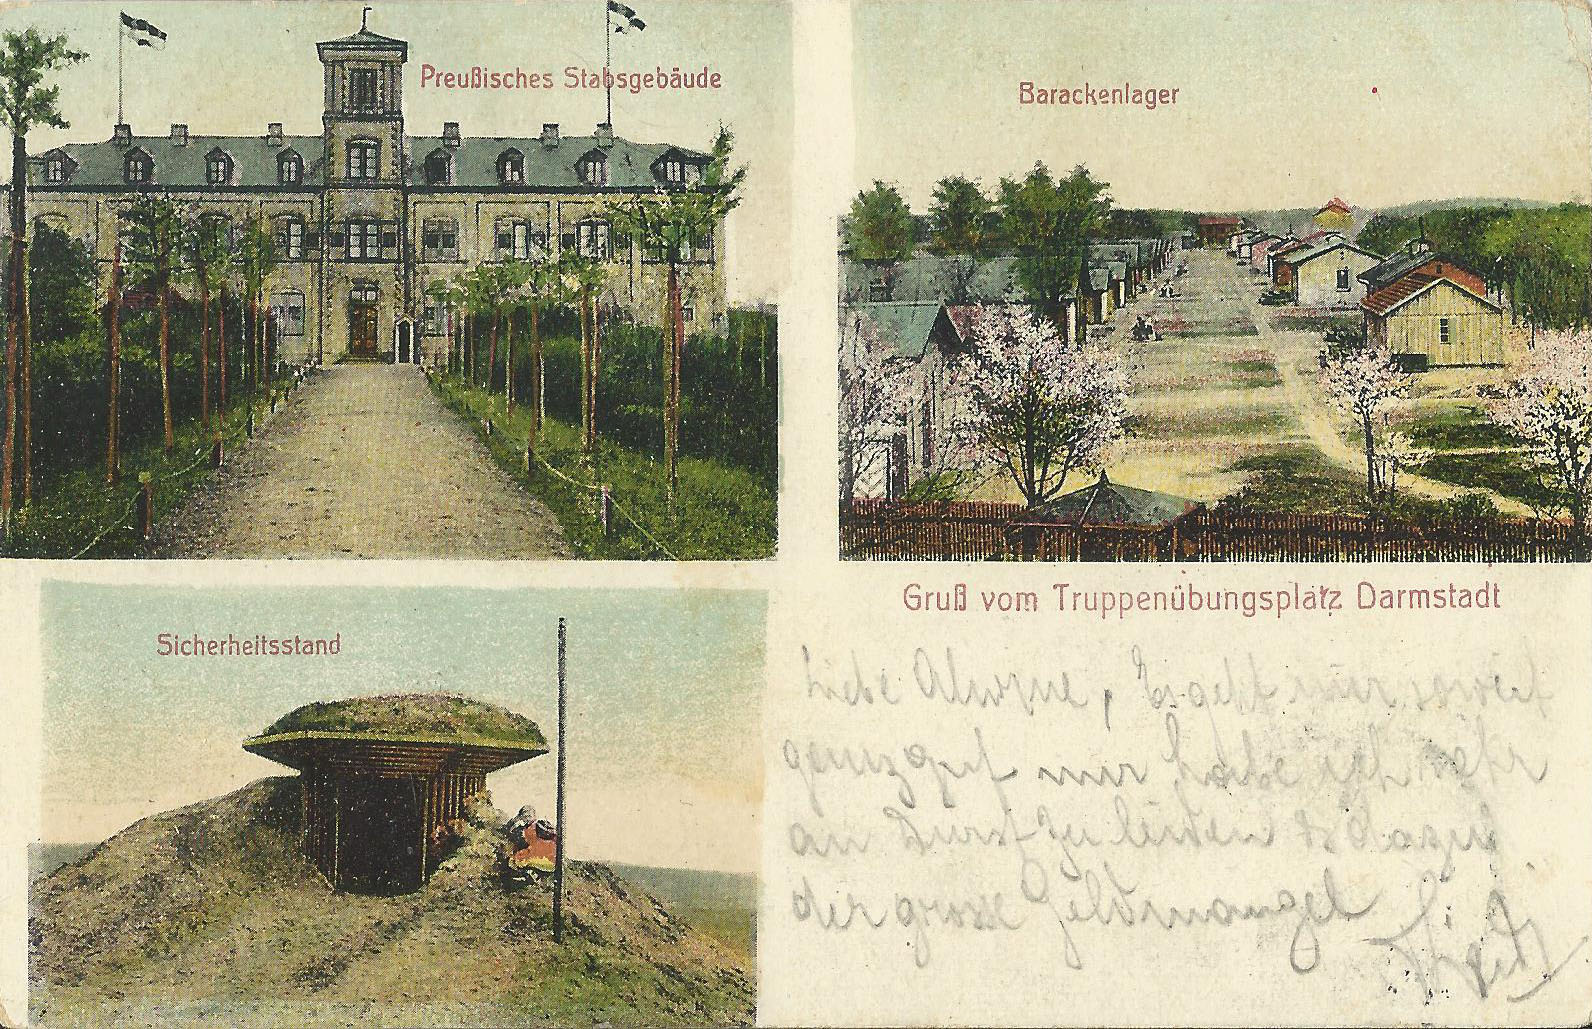 Preußisches Stabsgebäude
Barackenlager
Sicherheitsstand
Gruß vom Truppenübungsplatz Darmstadt
Liebe Alwine, Es geht mir soweit
ganz gut nur habe ich sehr
an Durst zu leiden & dazu
der grosse Geldmangel